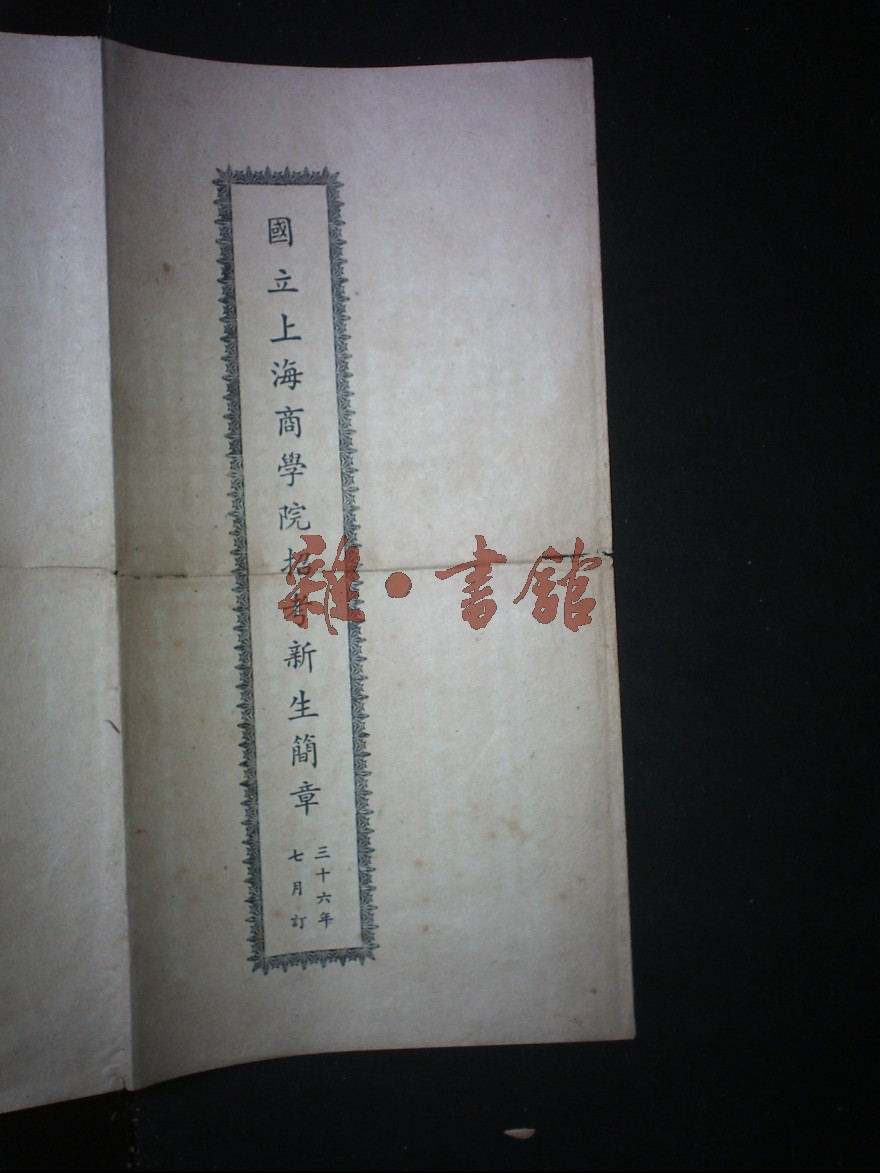 國立上海商學院招考新生簡章
三十六年
七月訂
雜·書館